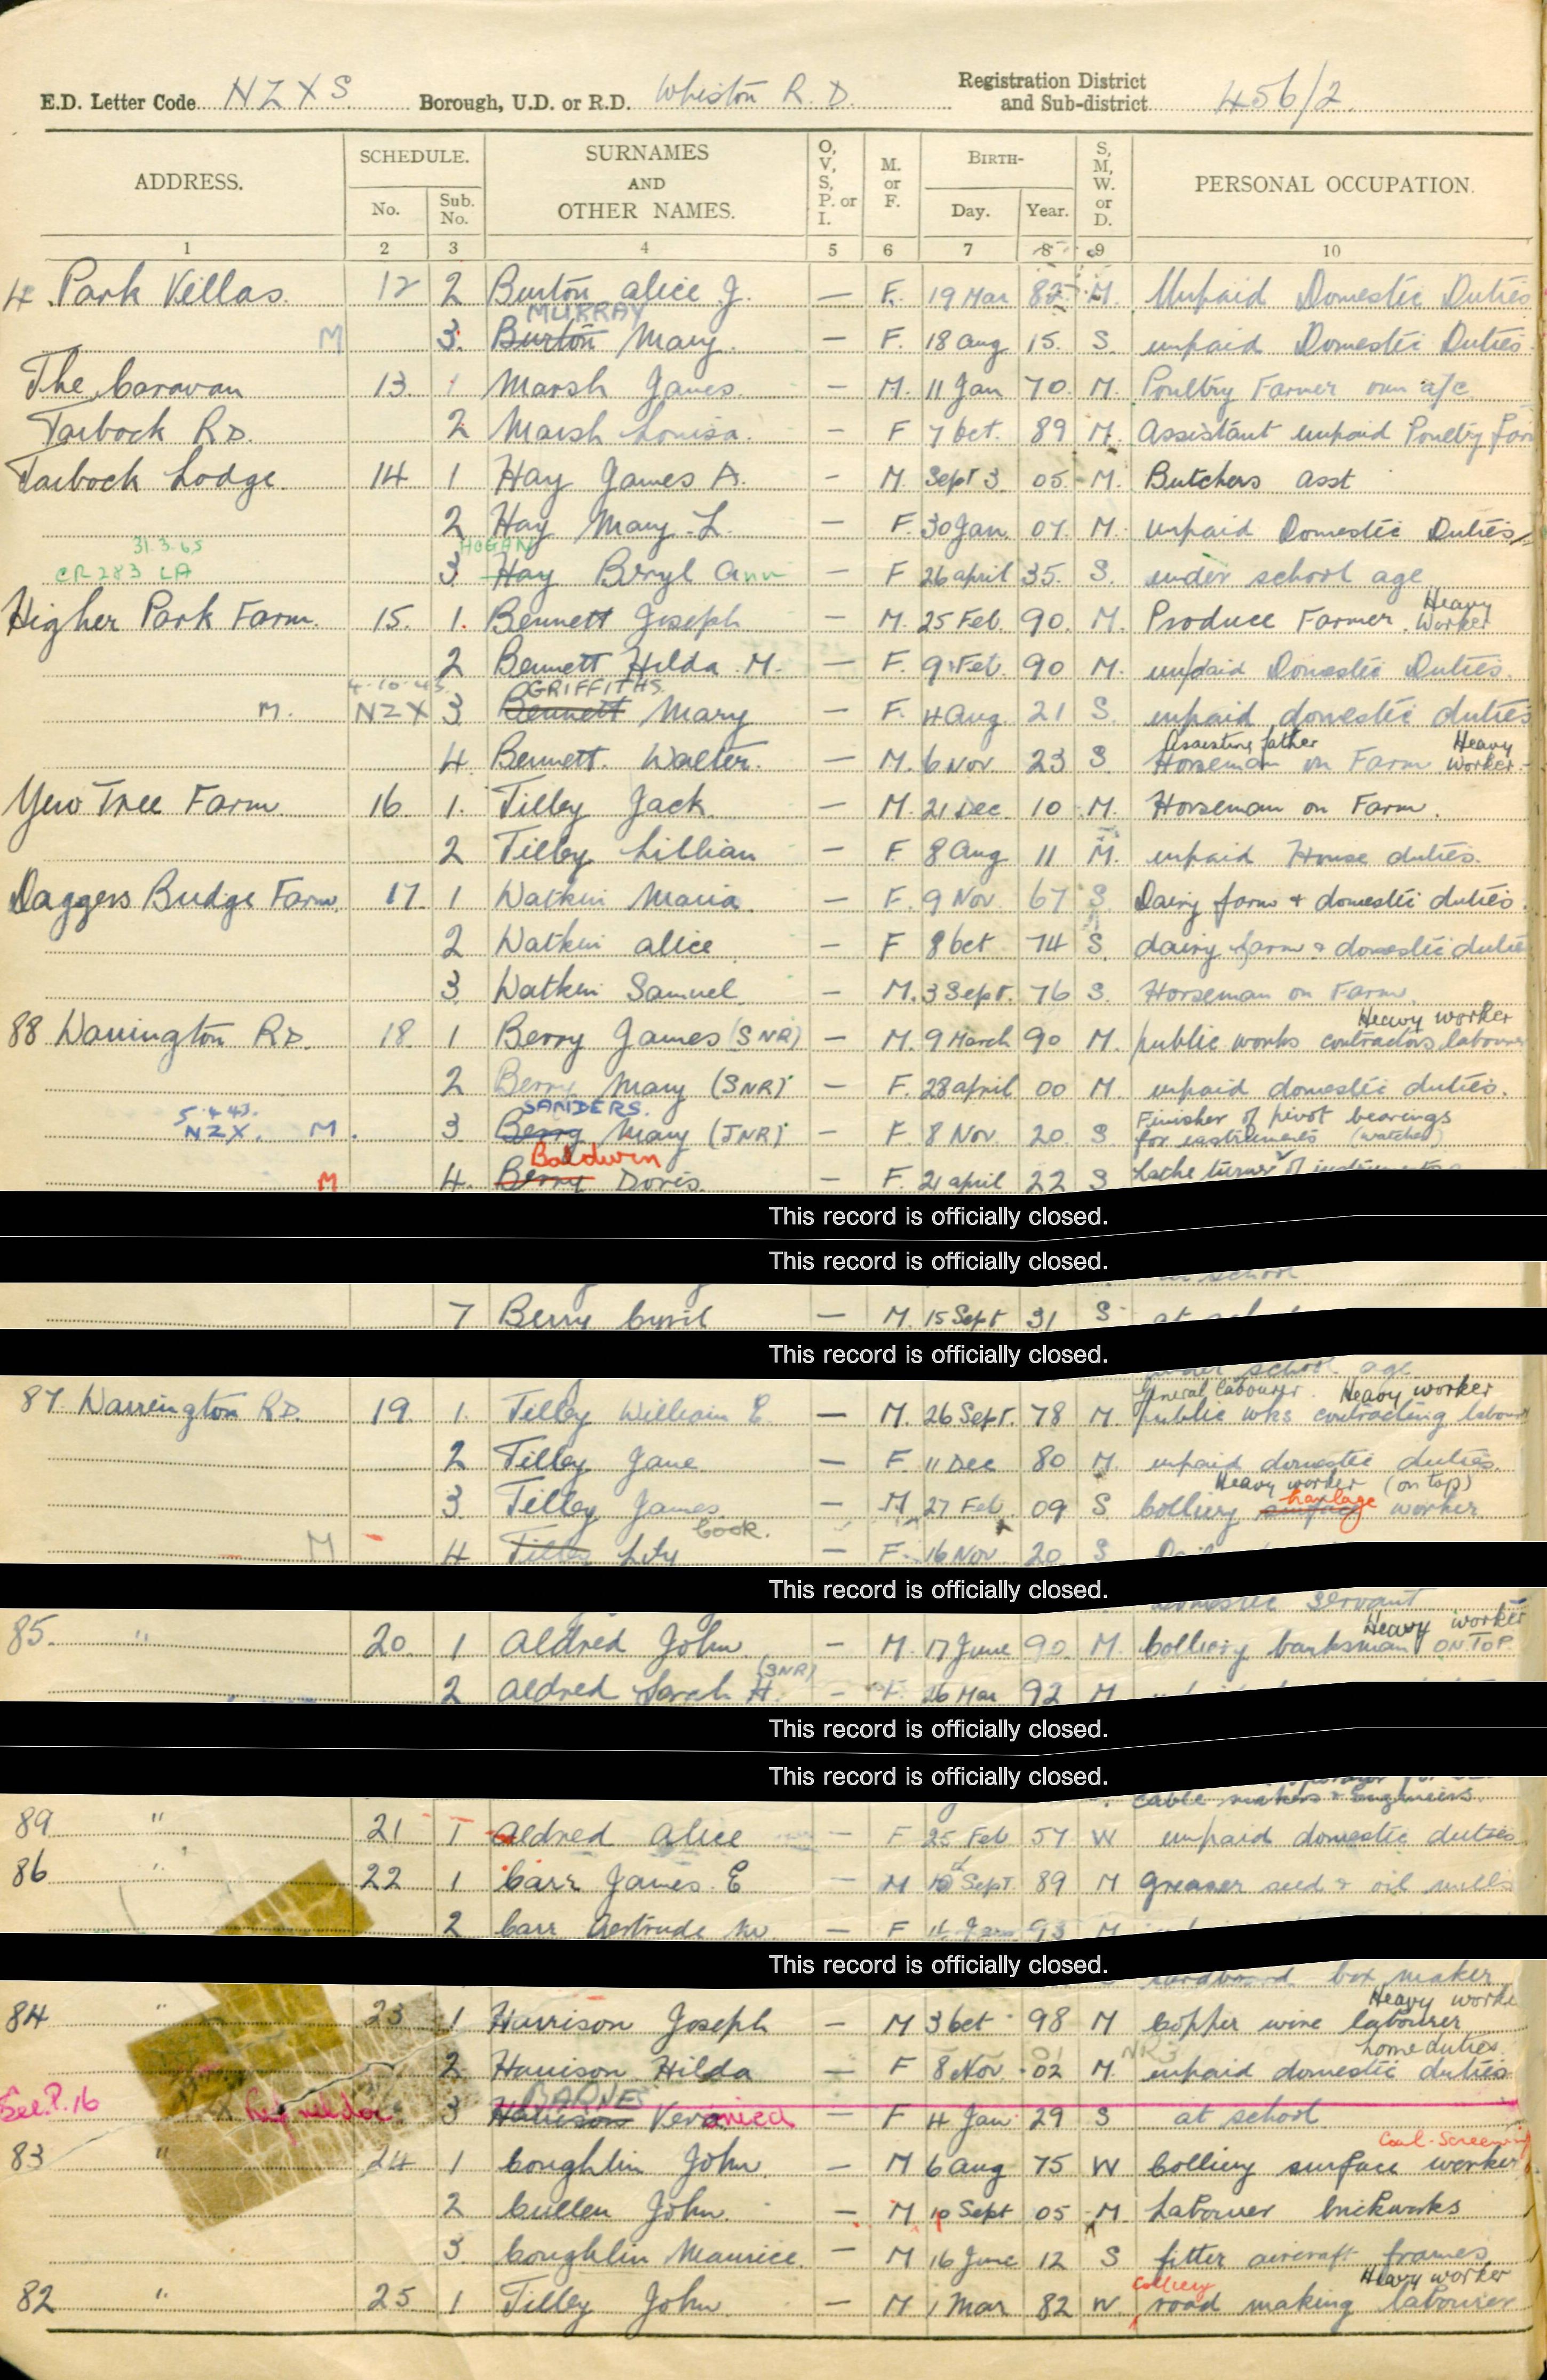 E.D. Letter Code NZXS Borough, U.D. or R.D. Whiston R.D. Registration District and Sub-district 456/2
ADDRESS. SCHEDULE. No. Sub. No. SURNAMES AND OTHER NAMES. O, V, S, P. or I. M. or F. BIRTH- Day. Year. S, M, W. or D. PERSONAL OCCUPATION.
1 2 3 4 5 6 7 8 9 10
4 Park Villas. 12 2 Burton Alice J. — F. 19 Mar 82 M. Unpaid Domestic Duties
MURRAY
M 3. Burton Mary. — F. 18 Aug 15. S. unpaid Domestic Duties.
The Caravan 13. 1 Marsh James. — M. 11 Jan 70. M. Poultry Farmer own a/c
Tarbock RD. 2 Marsh Louisa. — F 7 Oct. 89 M. Assistant unpaid Poultry Farm
Tarbock Lodge. 14 1 Hay James A. — M. Sept 3 05. M. Butchers asst
2 Hay Mary L. — F. 30 Jan. 07. M. unpaid Domestic Duties
31.3.65 HOGAN
CR283 LA 3 Hay Beryl Ann — F 26 April 35. S. under school age
Heavy
Higher Park Farm. 15. 1. Bennett Joseph — M. 25 Feb. 90. M. Produce Farmer. Worker
2 Bennett Hilda M. — F. 9 Feb. 90 M. unpaid Domestic Duties.
4.10.43. GRIFFITHS
M. NZX 3 Bennett Mary — F. 4 Aug 21 S. unpaid domestic duties
Assisting father Heavy
4. Bennett. Walter. — M. 6 Nov 23 S. Horseman on Farm Worker.
Yew Tree Farm. 16. 1. Tilley Jack. — M. 21 Dec. 10 M. Horseman on Farm.
2 Tilley Lillian — F 8 Aug 11 M. unpaid House duties.
Daggers Bridge Farm. 17. 1 Watkin Maria. — F. 9 Nov 67 S. Dairy farm & domestic duties.
2 Watkin Alice — F 8 Oct 74 S. dairy farm & domestic duties
3 Watkin Samuel — M. 3 Sept. 76 S. Horseman on Farm.
Heavy worker
88 Warrington RD. 18. 1 Berry James (SNR) — M. 9 March 90 M. public works contractors labourer
2 Berry Mary (SNR) — F. 28 April 00 M unpaid domestic duties.
5.4.43. SANDERS. Finisher of pivot bearings
NZX. M. 3 Berry Mary (JNR) — F 8 Nov. 20. S for instruments (watches)
Baldwin
M 4. Berry Doris. — F. 21 April 22 S Lathe turner of
This record is officially closed.
This record is officially closed.
school
7 Berry Cyril — M. 15 Sept 31 S at
This record is officially closed.
school age
General labourer. Heavy worker
87 Warrington RD. 19. 1. Tilley William E. — M. 26 Sept. 78 M. public wks contracting labour
2 Tilley Jane — F. 11 Dec 80 M. unpaid domestic duties.
Heavy worker (on top)
haulage
3 Tilley James. — M 27 Feb. 09 S. Colliery surface worker
Cook.
M 4 Tilley Lily — F. 16 Nov 20 S
This record is officially closed.
domestic servant
Heavy worker
85. " 20. 1 Aldred John — M. 17 June 90. M. Colliery banksman ON TOP.
(SNR)
2 Aldred Sarah H. — F. 26 Mar 92 M
This record is officially closed.
This record is officially closed.
cable makers & Engineers.
89 " 21 1 Aldred Alice — F 25 Feb 57 W unpaid domestic duties
86 " 22 1 Carr James. E — M 10 Sept 89 M Greaser seed & oil mills
2 Carr Gertrude M. — F 93 M
This record is officially closed.
box maker
Heavy worke
84 " 23 1 Harrison Joseph — M 3 Oct 98 M Copper wire labourer
NR3 home duties.
2. Harrison Hilda — F 8 Nov 02 M. unpaid domestic duties
BARNES
See P. 16 3 Harrison Veronica — F 4 Jan 29 S at school
Coal-Screening
83 " 24 1 Coughlin John. — M 6 Aug 75 W Colliery surface worker
2 Cullen John. — M 10 Sept 05 M. Labourer brickworks
3. Coughlin Maurice. — M 16 June 12 S fitter aircraft frames
Colliery Heavy worker
82 " 25 1 Tilley John. — M 1 Mar 82 W. road making labourer